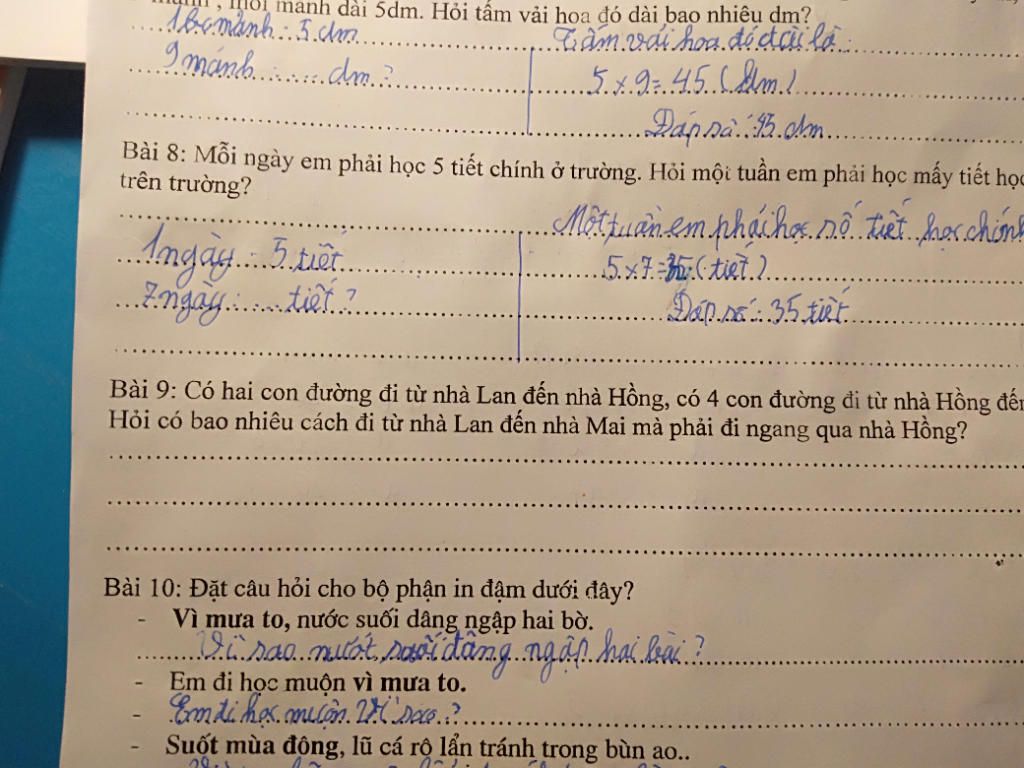 , mỗi mảnh dài 5dm. Hỏi tấm vải hoa đó dài bao nhiêu dm?
mảnh : 5 dm
Tấm vải hoa đó dài là :
9 mảnh : .... dm ?
5 x 9 = 45 ( dm )
Đáp số : 45 dm
Bài 8: Mỗi ngày em phải học 5 tiết chính ở trường. Hỏi một tuần em phải học mấy tiết học
trên trường?
Một tuần em phải học số tiết học chính
1 ngày : 5 tiết
5 x 7 = 35 ( tiết )
7 ngày : .... tiết ?
Đáp số : 35 tiết
Bài 9: Có hai con đường đi từ nhà Lan đến nhà Hồng, có 4 con đường đi từ nhà Hồng đến
Hỏi có bao nhiêu cách đi từ nhà Lan đến nhà Mai mà phải đi ngang qua nhà Hồng?
Bài 10: Đặt câu hỏi cho bộ phận in đậm dưới đây?
- Vì mưa to, nước suối dâng ngập hai bờ.
Vì sao nướt suối dâng ngập hai bài ?
- Em đi học muộn vì mưa to.
- Em đi học muộn Vì sao ?
- Suốt mùa đông, lũ cá rô lẩn tránh trong bùn ao..